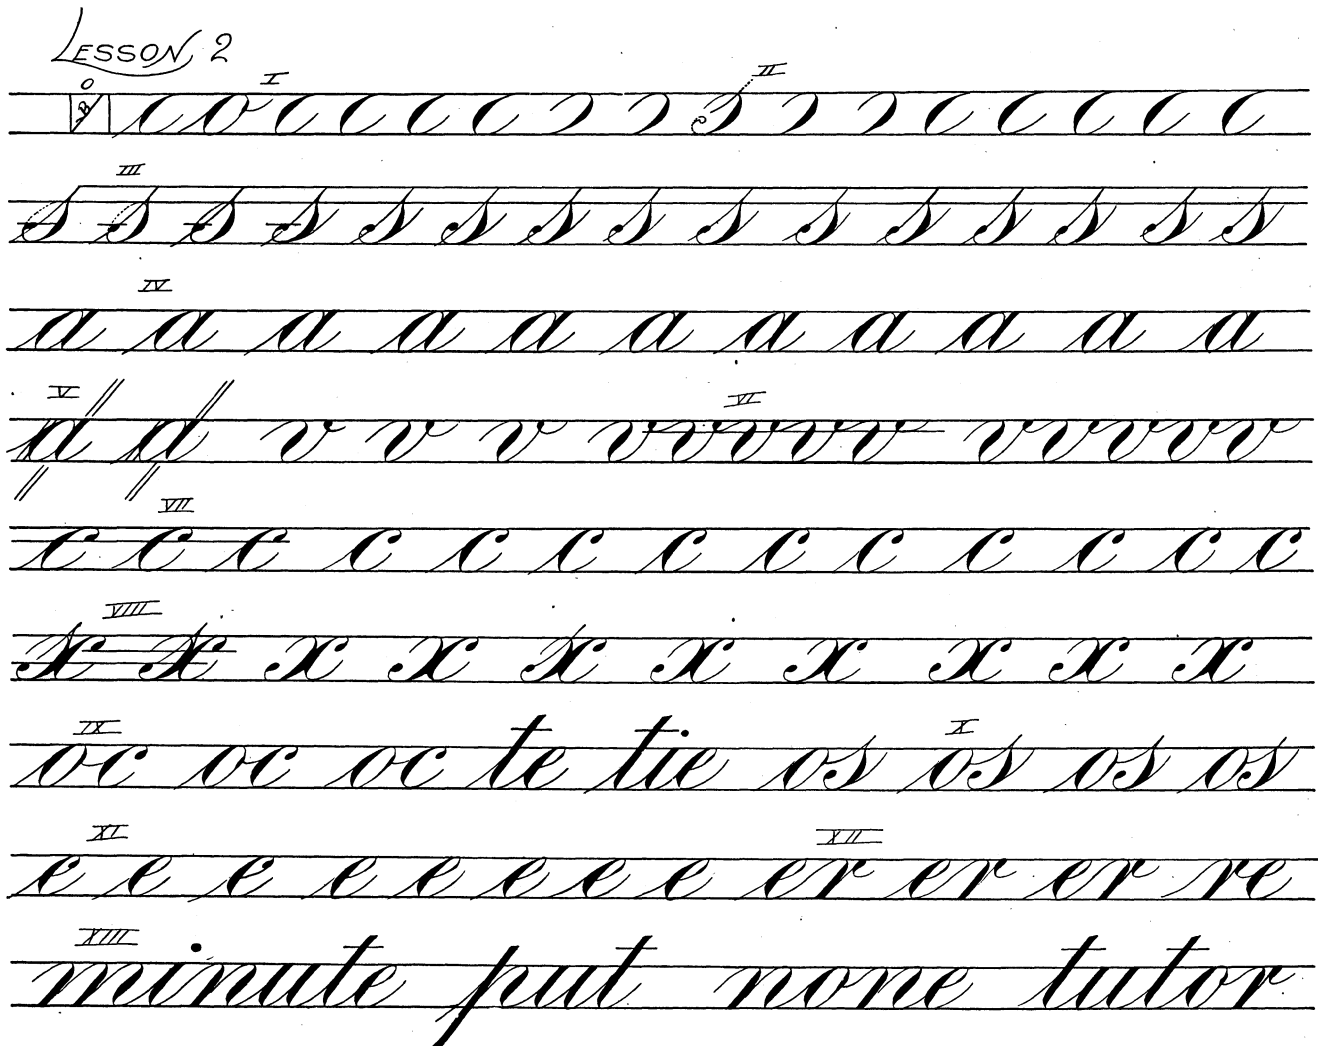 LESSON 2
I II
III
s s s s s s s s s s s s s s s
IV
a a a a a a a a a a a
V VI
a a v v v vvvvv vvvvv
VII
c c c c c c c c c c c c c
VIII
x x x x x x x x x x
IX X
oc oc oc te tie os os os os
XI XII
e e e e e e e e er er er re
XIII
minute put none tutor